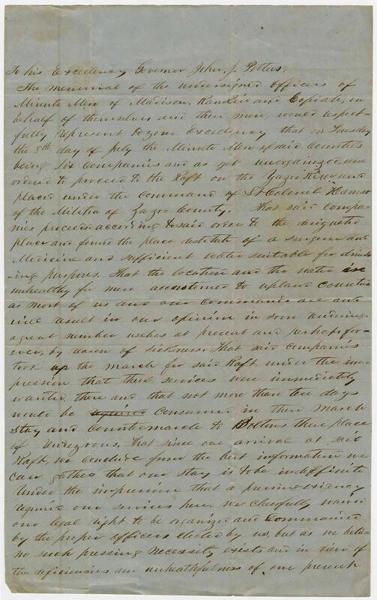 To his Excellency Governor John J. Pettus,
The memorial of the undersigned Officers of
Minute Men of Madison, Rankin and Copiah, in
behalf of themselves and their men, would respect-
fully represent to your Excellency that on Tuesday
the 8th day of July the Minute Men of said Counties
being Six Companies and as yet unorganized were
ordered to proceed to the Raft on the Yazoo River and
placed under the command of Lt Colonel
of the Militia of Yazoo County. That said compa-
nies proceeded according to said order to the designated
place and found the place destitute of a surgeon and
Medicine and sufficient water suitable for drink-
ing purposes. That the location and the water are
unhealthy for men accustomed to upland Counties
as most of us and our commands are and
will result in our opinion in soon rendering
a great number useless at present and perhaps for-
ever, by reason of sickness. That said companies
took up the march for said Raft under the im-
pression that their services were immediately
wanted there and that not more than ten days
would be consumed in their March
stay and Countermarch to Boltons their place
of rendezvous, that since our arrival at said
Raft we conclude from the best information we
can gather that our stay is to be indefinite
Under the impression that a pressing
required our services here we cheerfully waived
our legal right to be organized and Commanded
by the proper officers elected by us, but as we believe
no such pressing necessity exists and in view of
the deficiencies and unhealthfulness of our present